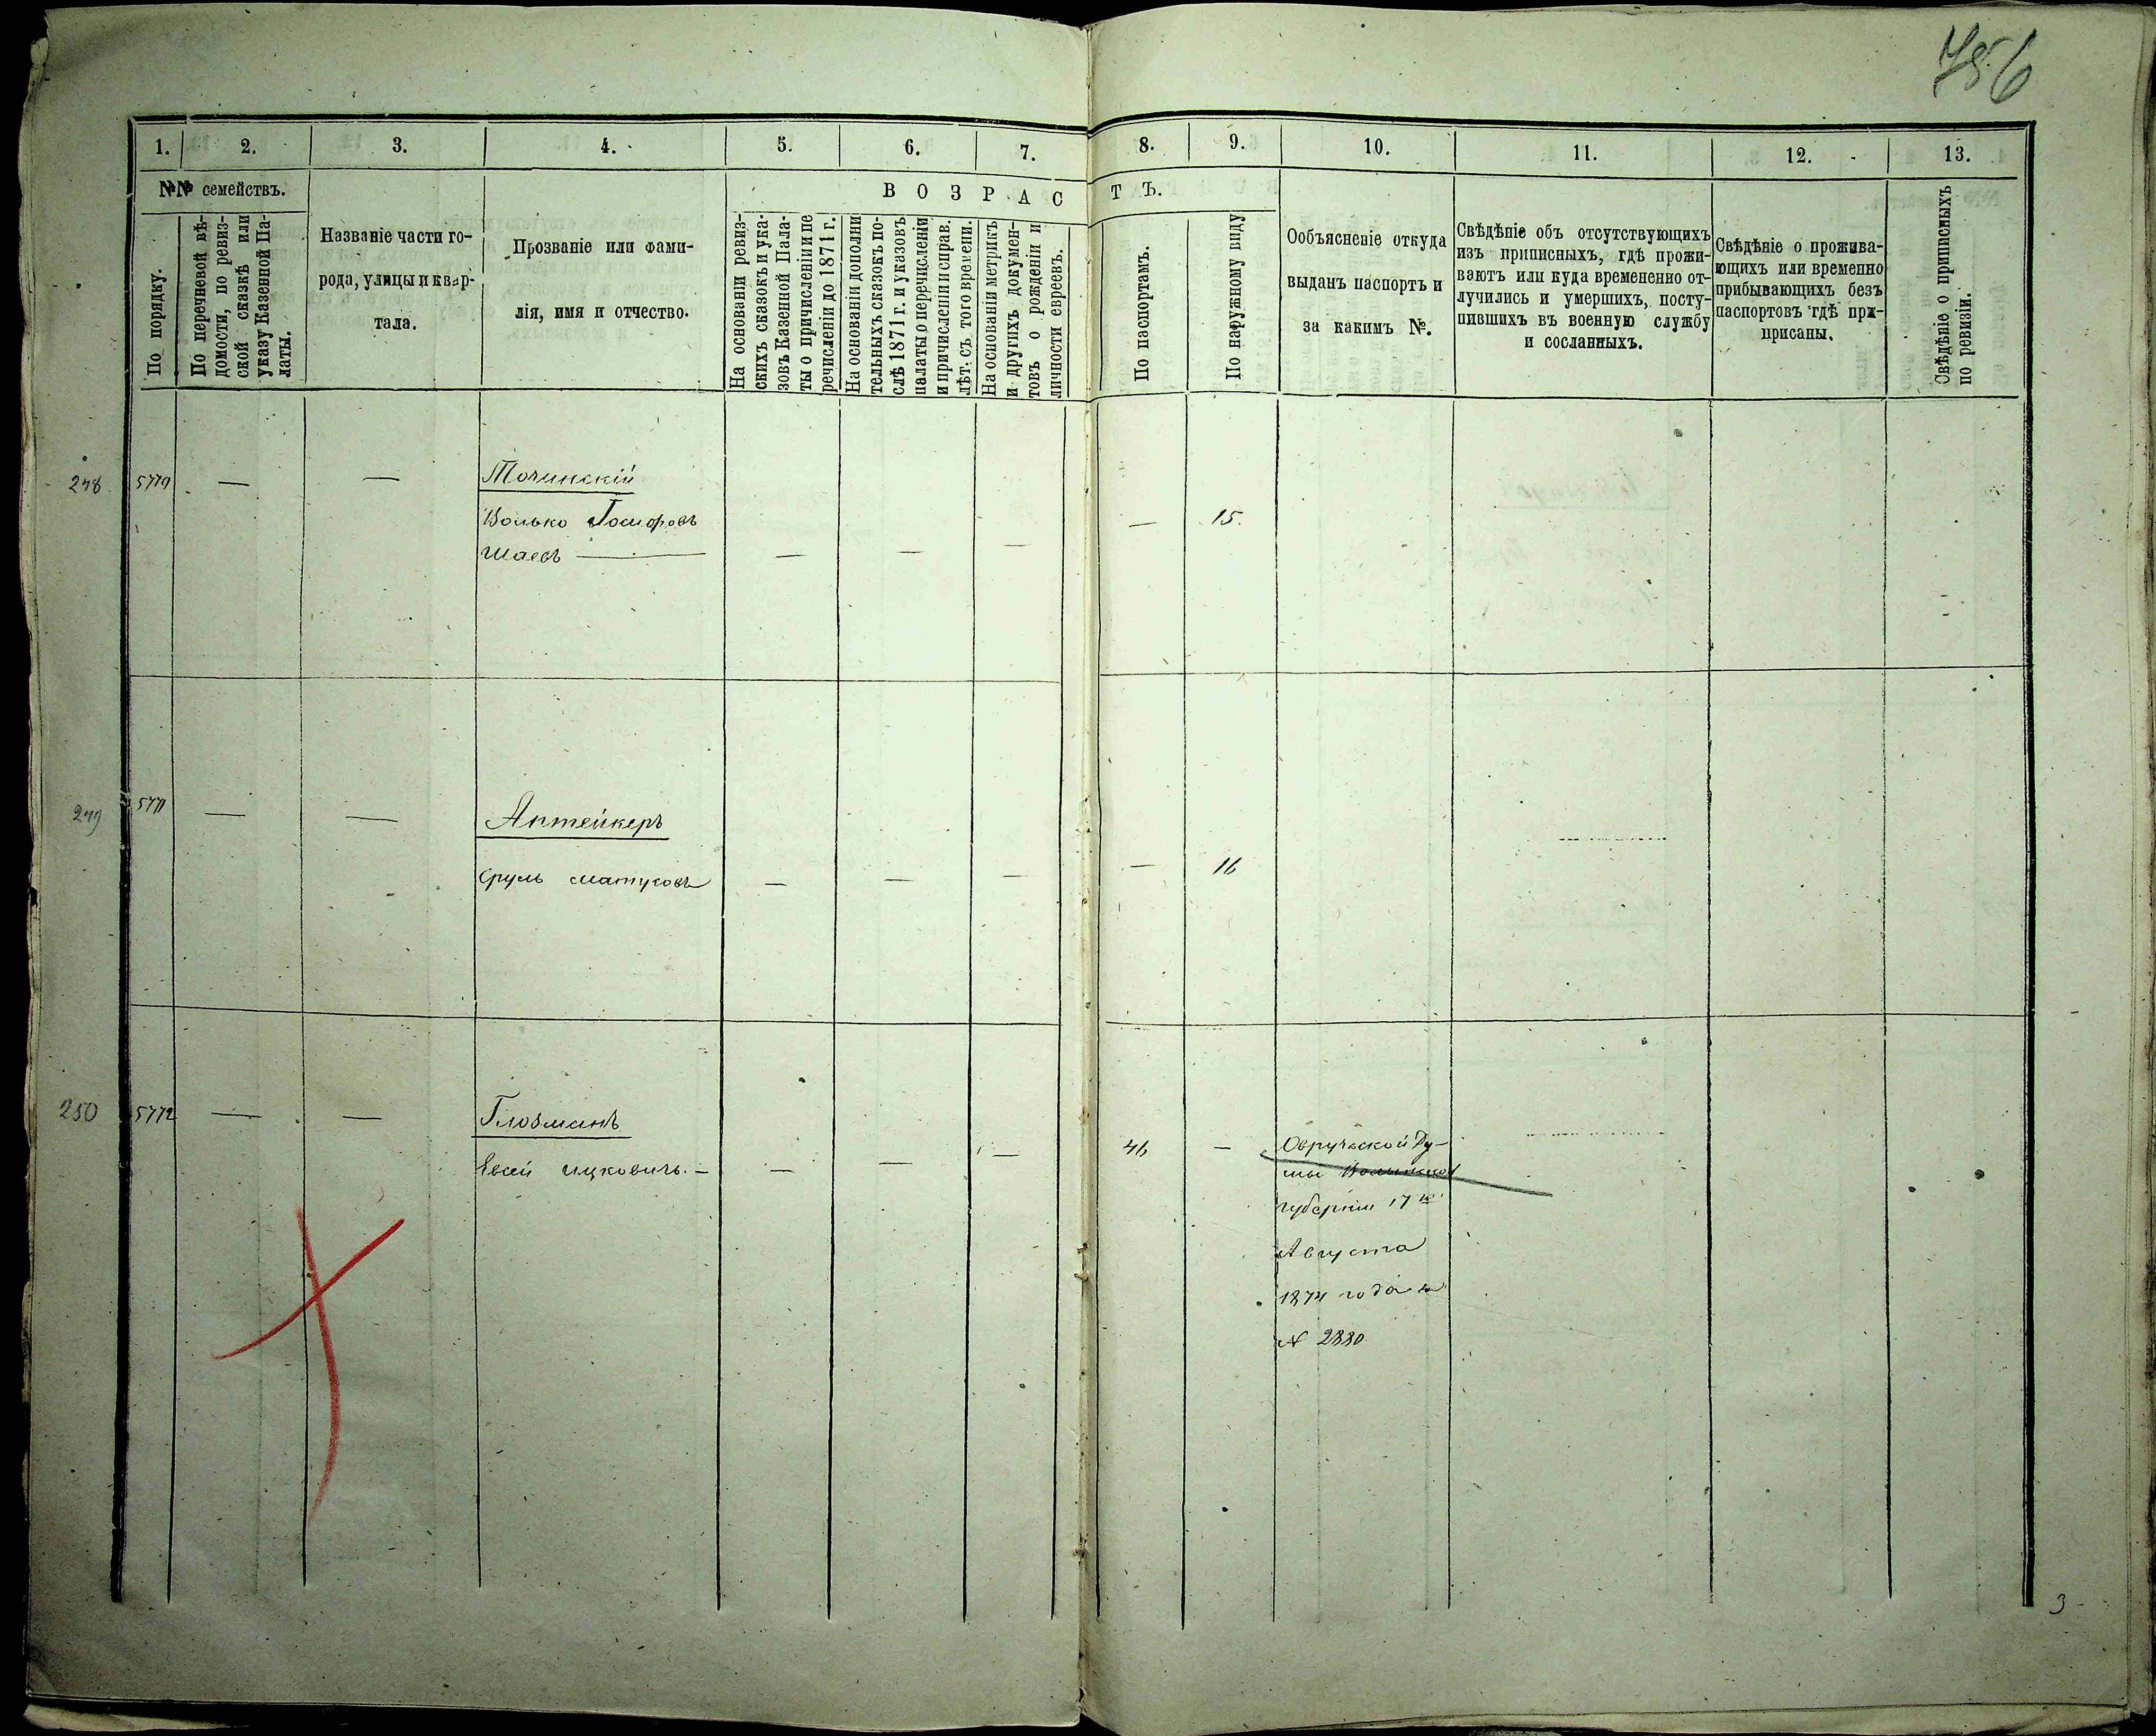 756
1. 2. 3. 4. 5. 6. 7. 8. 9. 10. 11. 12. 13.
№№ семействъ.
В О З Р А С Т Ъ.
По порядку.
По перечневой вѣ-
домости, по ревиз-
ской сказкѣ или
указу Казенной Па-
латы.
Названіе части го-
рода, улицы и квар-
тала.
Прозваніе или фами-
лія, имя и отчество.
На основаніи ревиз-
скихъ сказокъ и ука-
зовъ Казенной Пала-
ты о причисленіи и пе
речисленіи до 1871 г.
На основаніи дополни
тельныхъ сказокъ по-
слѣ 1871 г. и указовъ
палаты о перечисленіи
и причисленіи и справ.
лѣт. съ того времени.
На основаніи метрикъ
и другихъ докумен-
товъ о рожденіи и
личности евреевъ.
По паспортамъ.
По наружному виду
Ообъясненіе откуда
выданъ паспортъ и
за какимъ №.
Свѣдѣніе объ отсутствующихъ
изъ приписныхъ, гдѣ прожи-
ваютъ или куда времененно от-
лучились и умершихъ, посту-
пившихъ въ военную службу
и сосланныхъ.
Свѣдѣніе о прожива-
ющихъ или временно
прибывающихъ безъ
паспортовъ гдѣ при-
писаны.
Свѣдѣніе о приписныхъ
по ревизіи.
248 5770 — — Точинскій
Волько Іосифовъ — 15.
Шаевъ — — — —
249 5771 — — Аптейкеръ
Сруль Матусовъ — — — — 16
250 5772 — — Глозманъ
Евсей Ицковичъ. — — — — 46 — Овручской Ду-
мы Волынской
Губерніи 17го
Августа
1874 года за
№ 2880
3